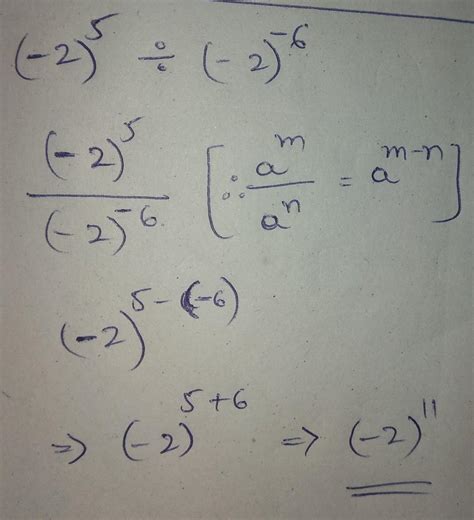 (-2)^5 ÷ (-2)^-6
(-2)^5 / (-2)^-6 [∵ a^m / a^n = a^m-n]
(-2)^5-(-6)
⇒ (-2)^5+6 ⇒ (-2)^11